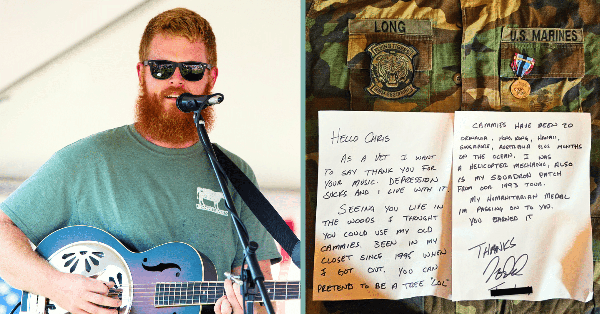 LONG
U.S. MARINES
HELLO CHRIS
AS A VET I WANT
TO SAY THANK YOU FOR
YOUR MUSIC. DEPRESSION
SUCKS AND I LIVE WITH IT.
SEEING YOU LIVE IN
THE WOODS I THOUGHT
YOU COULD USE MY OLD
CAMMIES. BEEN IN MY
CLOSET SINCE 1995 WHEN
I GOT OUT. YOU CAN
PRETEND TO BE A TREE "LOL"
CAMMIES HAVE BEEN TO
OKINAWA, HONG KONG, HAWAII,
SINGAPORE, AUSTRALIA PLUS MONTHS
ON THE OCEAN. I WAS
A HELICOPTER MECHANIC, ALSO
IS MY SQUADRON PATCH
FROM OUR 1993 TOUR.
MY HUMANITARIAN MEDAL
I'M PASSING ON TO YOU.
YOU EARNED IT
THANKS